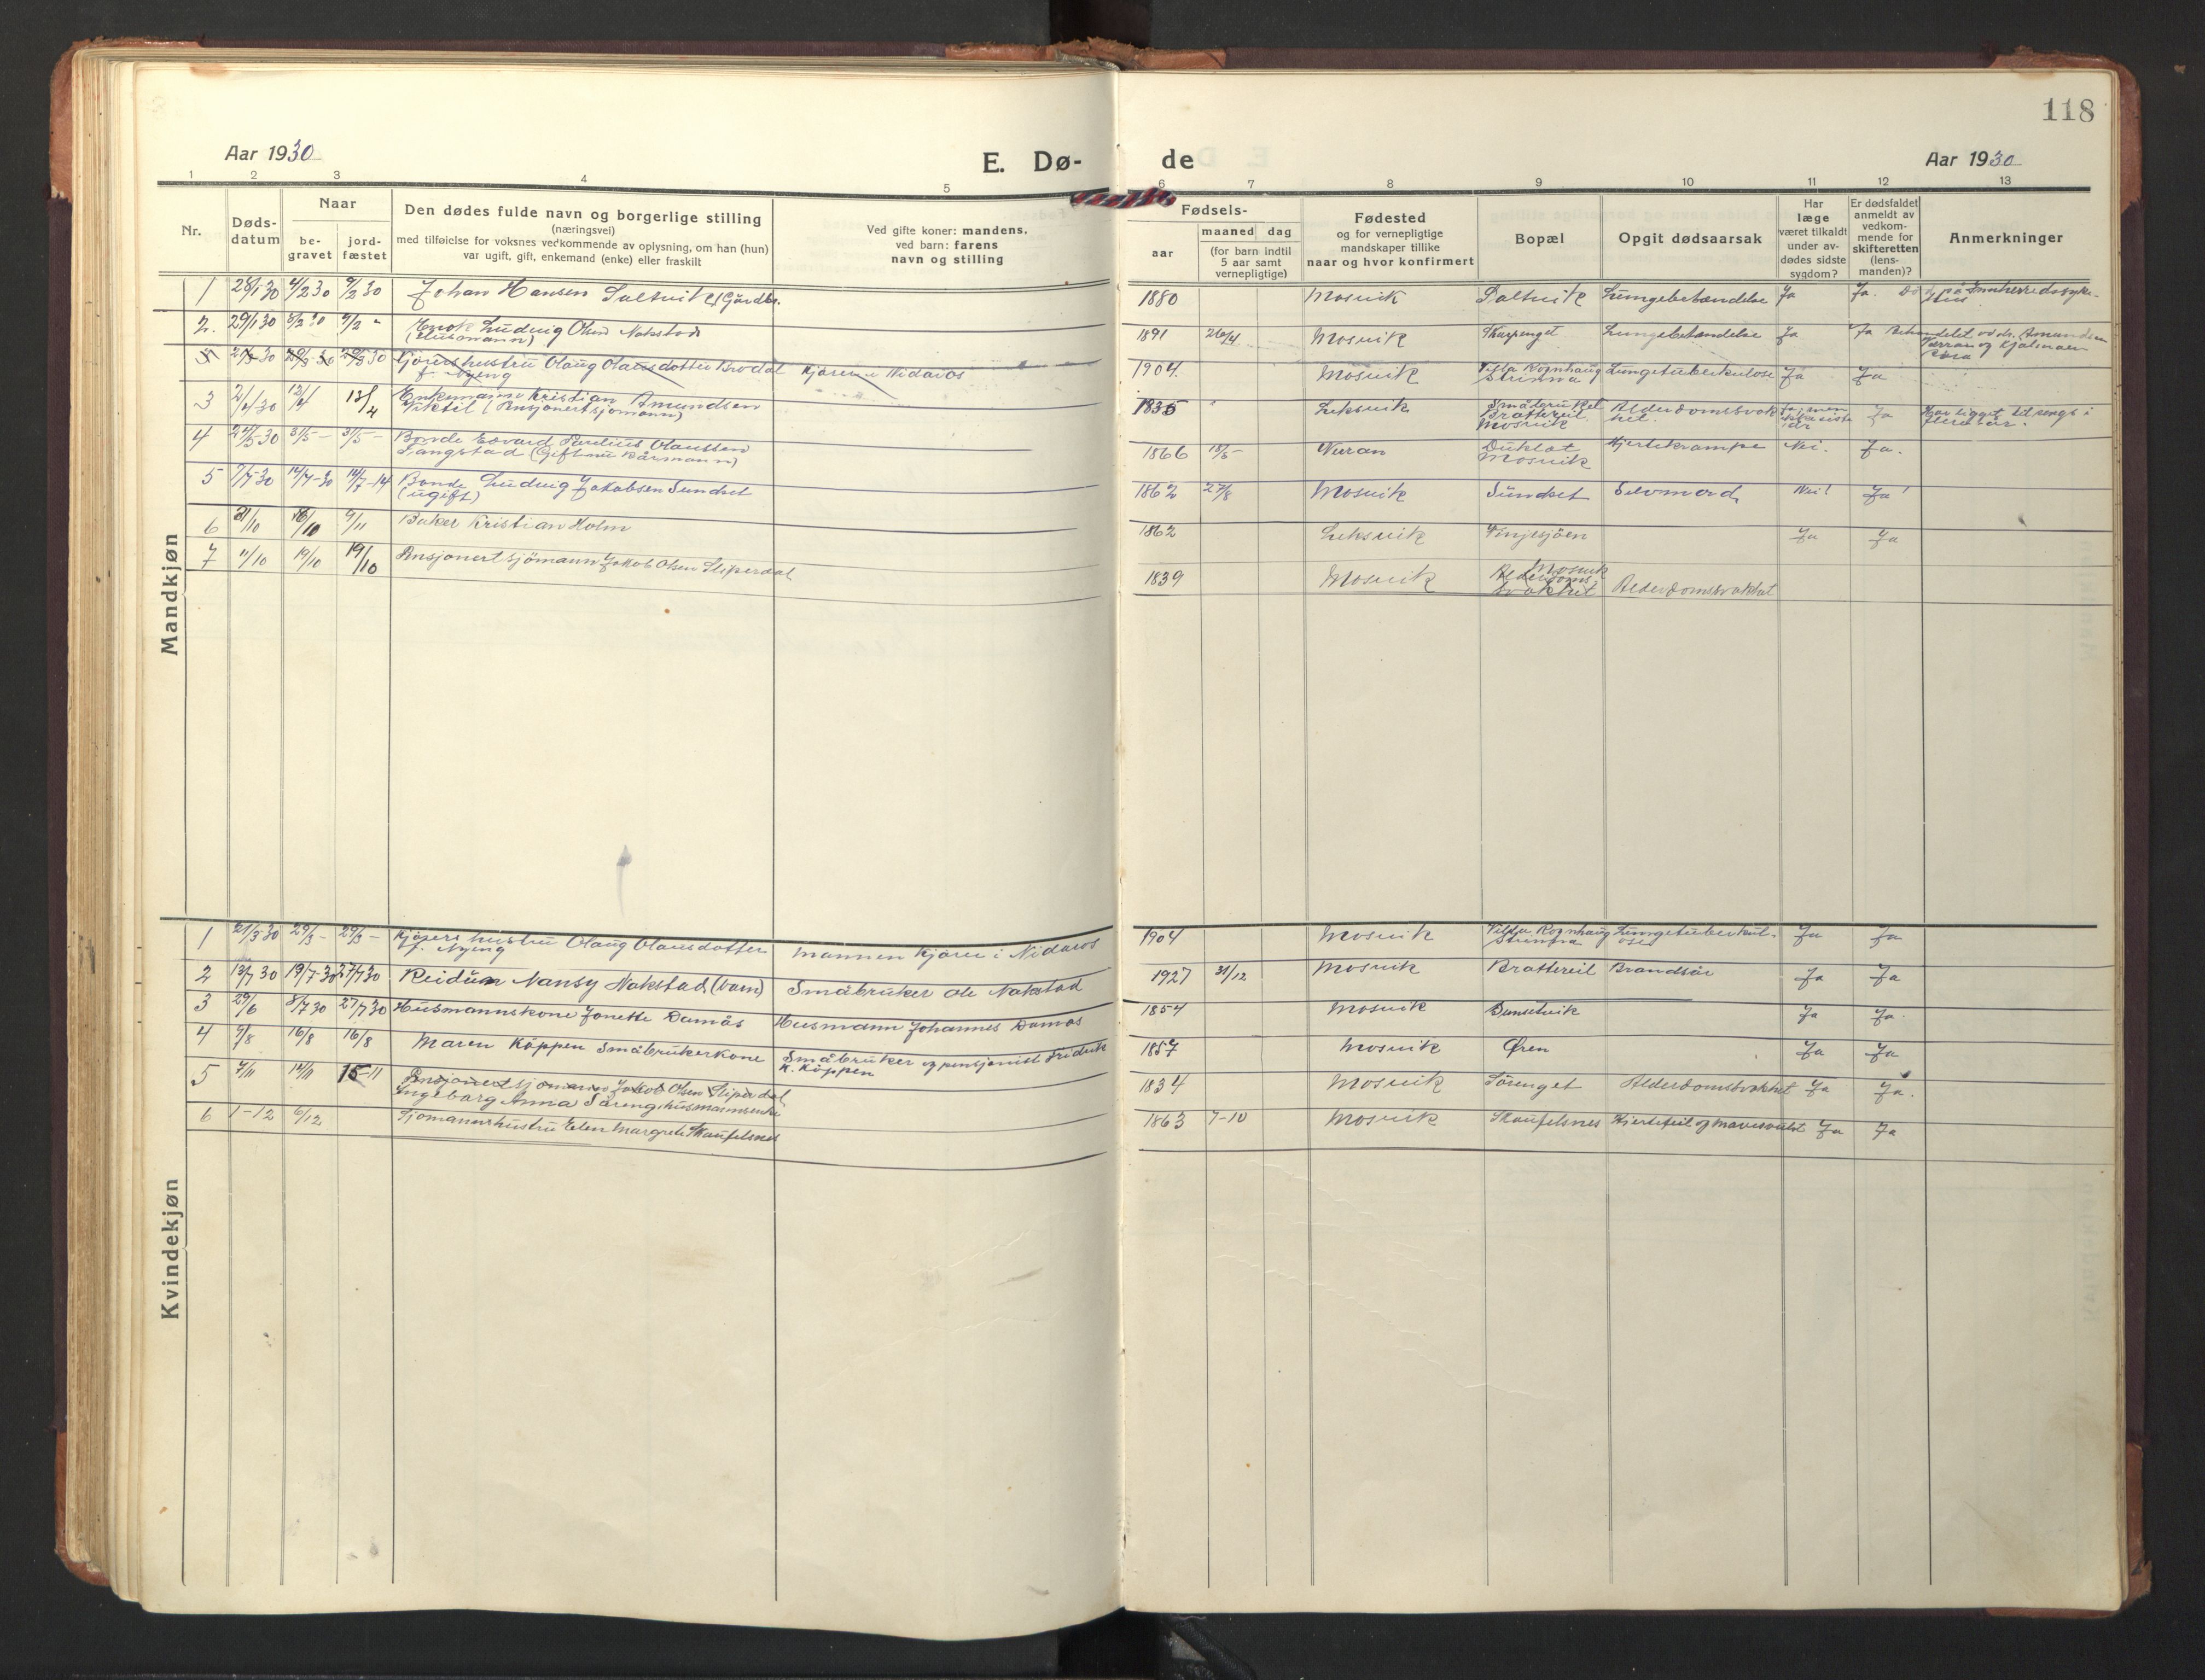 118
Aar 1930
E. Dø-
de
Aar 1930
1 2 3 4 5 6 7 8 9 10 11 12 13
Nr.
Døds-
datum
Naar
be-
gravet
jord-
fæstet
Den dødes fulde navn og borgerlige stilling
(næringsvei)
med tilføielse for voksnes vedkommende av oplysning, om han (hun)
var ugift, gift, enkemand (enke) eller fraskilt
Ved gifte koner: mandens,
ved barn: farens
navn og stilling
Fødsels-
aar
maaned dag
(for barn indtil
5 aar samt
vernepligtige)
Fødested
og for vernepligtige
mandskaper tillike
naar og hvor konfirmert
Bopæl
Opgit dødsaarsak
Har
læge
været tilkaldt
under av-
dødes sidste
sygdom?
Er dødsfaldet
anmeldt av
vedkom-
mende for
skifteretten
(lens-
manden)?
Anmerkninger
Mandkjøn
1 28/1 30 4/2 30 9/2 30 Johan Hansen Saltvik Gårdbr. 1880 Mosvik Saltvik Lungebetændelse Ja Ja. Død på Innherred syke-
hus
2. 29/1 30 5/2 30 9/2 " Enok Ludvig Olsen Nakstad
(Husmann) 1891 26/4 Mosvik Lungebetændelse Ja Ja Behandlet av dr. Amundsen
Verran og
3 21/3 30 29/3 30 29/3 30 Kjørershustru Olaug Olausdotter Brodal
f. Nyeng Kjører i Nidaros 1904. Mosvik Villa Rognhaug
Strinna Lungetuberkulose Ja Ja
3 2/4 30 12/4 13/4 Enkemann Kristian Amundsen
Viktil (Pensjonert sjømann) 1835 Leksvik Småbruket
Brattereit
Mosvik Alderdomssvak
het. Ja, men
ikke siste
år Ja Har ligget tilsengs i
flere år.
4 24/5-30 31/5 - 31/5 - Bonde Edvard Paulius Olaussen
Langstad (Gift nu kårmann) 1866 Verran Duklat
Mosvik Hjertekrampe Nei. Ja.
5 7/7-30 14/7-30 14/7-14 Bonde Ludvig Jakobsen Sundset
(ugift) 1862 27/8 Mosvik Sundset Selvmord Nei! Ja!
6 31/10 9/11 Baker Kristian Holm 1862 Leksvik Vinjesjøen Ja Ja
7 11/10 19/10 19/10 Pensjonert sjømann Jakob Olsen Sliperdal 1839 Mosvik Mosvik
Alderdoms-
svakhet Alderdomssvakhet
Kvindekjøn
1 21/3 30 29/3 - 29/3 - Kjørers hustru Olaug Olausdotter
f. Nyeng Mannen kjører i Nidaros 1904 Mosvik Villa Rognhaug
Strinna Lungetuberkul-
ose Ja Ja
2 13/7 30 19/7-30 27/7 30 Reidun Nansy Nakstad (barn) Småbruker Ole Nakstad 1927 31/12 Mosvik Brattereit Brandsår Ja Ja
3 29/6 5/7 30 27/7 30 Husmannskone Jonette Damås Husmann Johannes Damås 1854 Mosvik Sunsetvik Ja Ja.
4 9/8 16/8 16/8 Maren Köppen Småbrukerkone Småbruker og pensjonist Fridrik
K. Köppen 1857 Mosvik Øren Ja Ja
5 7/11 14/11 15-11 Pensjonert sjømann Jakob Olsen Sliperdal
Ingeborg Anna Sørenghusmannsenke 1834 Mosvik Sörenget Alderdomssvakhet Ja Ja.
6 1-12 6/12 Sjømannshustru Elen Margrete Skaufelsnes 1863 7-10 Mosvik Skaufelsnes Hjertefeil og mavesvulst Ja Ja